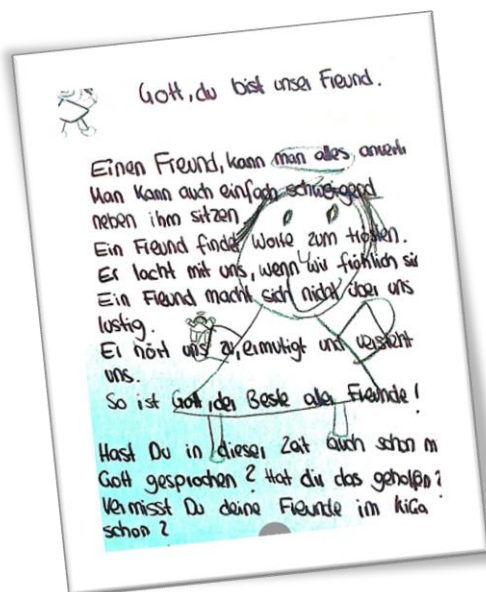 Gott, du bist unser Freund.
Einen Freund, kann man alles anvert
Man kann auch einfach schweigend
neben ihm sitzen
Ein Freund findet Worte zum trösten.
Er lacht mit uns, wenn wir fröhlich si
Ein Freund macht sich nicht über uns
lustig.
Er hört uns zu, ermutigt und versteht
uns.
So ist Gott, der Beste aller Freunde!
Hast Du in dieser Zeit auch schon m
Gott gesprochen? Hat dir das geholfen?
Vermisst Du deine Freunde im KiGa
schon?